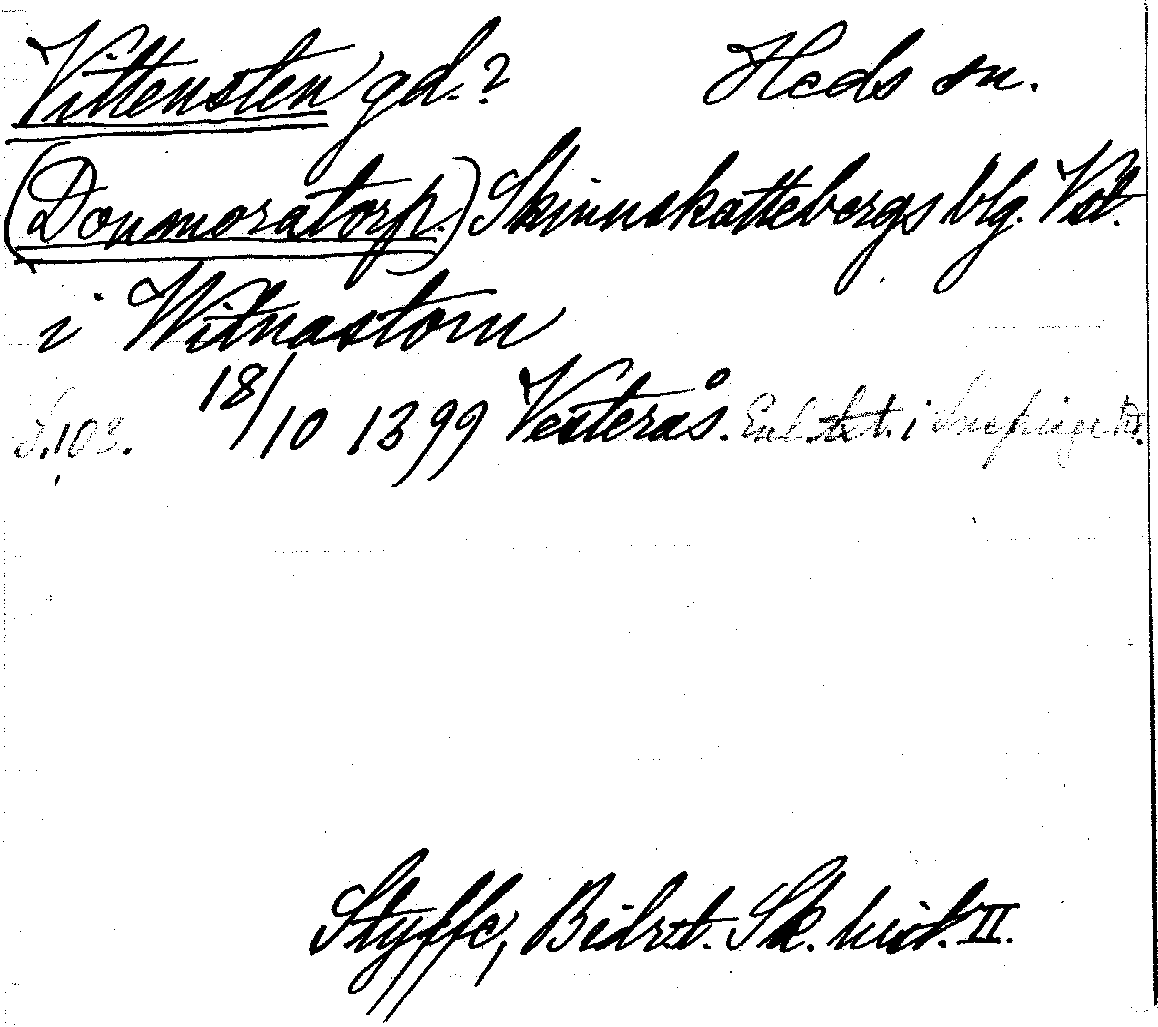 Vittensten gd.? Heds sn.
(Dommoratorp.) Skinnskattebergs blg. Vstl.
i Witnastom
S. 103. 18/10 1399 Vesterås. Enl. txt. i
Styffe, Bidr. t. Sk. hist. II.